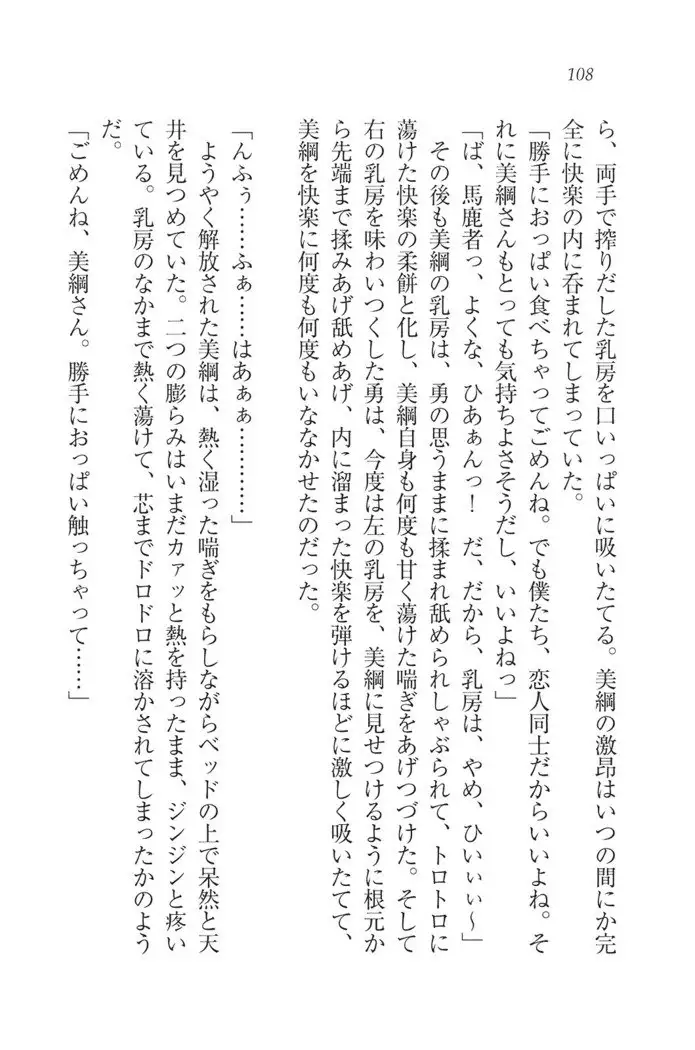 108
ら、両手で搾りだした乳房を口いっぱいに吸いたてる。美綱の激昂はいつの間にか完
全に快楽の内に呑まれてしまっていた。
「勝手におっぱい食べちゃってごめんね。でも僕たち、恋人同士だからいいよね。そ
れに美綱さんもとっても気持ちよさそうだし、いいよねっ」
「ば、馬鹿者っ、よくな、ひあぁんっ！　だ、だから、乳房は、やめ、ひいぃぃ～」
その後も美綱の乳房は、勇の思うままに揉まれ舐められしゃぶられて、トロトロに
蕩けた快楽の柔餅と化し、美綱自身も何度も甘く蕩けた喘ぎをあげつづけた。そして
右の乳房を味わいつくした勇は、今度は左の乳房を、美綱に見せつけるように根元か
ら先端まで揉みあげ舐めあげ、内に溜まった快楽を弾けるほどに激しく吸いたてて、
美綱を快楽に何度も何度もいななかせたのだった。
「んふぅ……ふぁ……はあぁぁ…………」
ようやく解放された美綱は、熱く湿った喘ぎをもらしながらベッドの上で呆然と天
井を見つめていた。二つの膨らみはいまだカァッと熱を持ったまま、ジンジンと疼い
ている。乳房のなかまで熱く蕩けて、芯までドロドロに溶かされてしまったかのよう
だ。
「ごめんね、美綱さん。勝手におっぱい触っちゃって……」